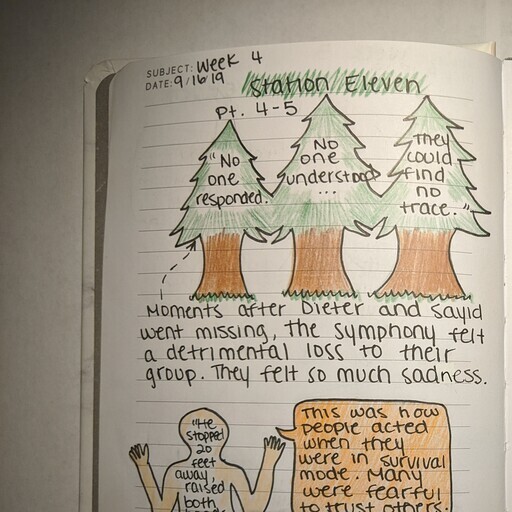 SUBJECT: Week 4
DATE: 9/16/19
Station Eleven
Pt. 4-5
"No
one
responded.
No
one
understood
...
They
could
find
no
trace."
Moments after Dieter and Sayid
went missing, the symphony felt
a detrimental loss to their
group. They felt so much sadness.
"He
stopped
20
feet
away,
raised
both
This was how
people acted
when they
were in survival
mode. Many
were fearful
to trust others.